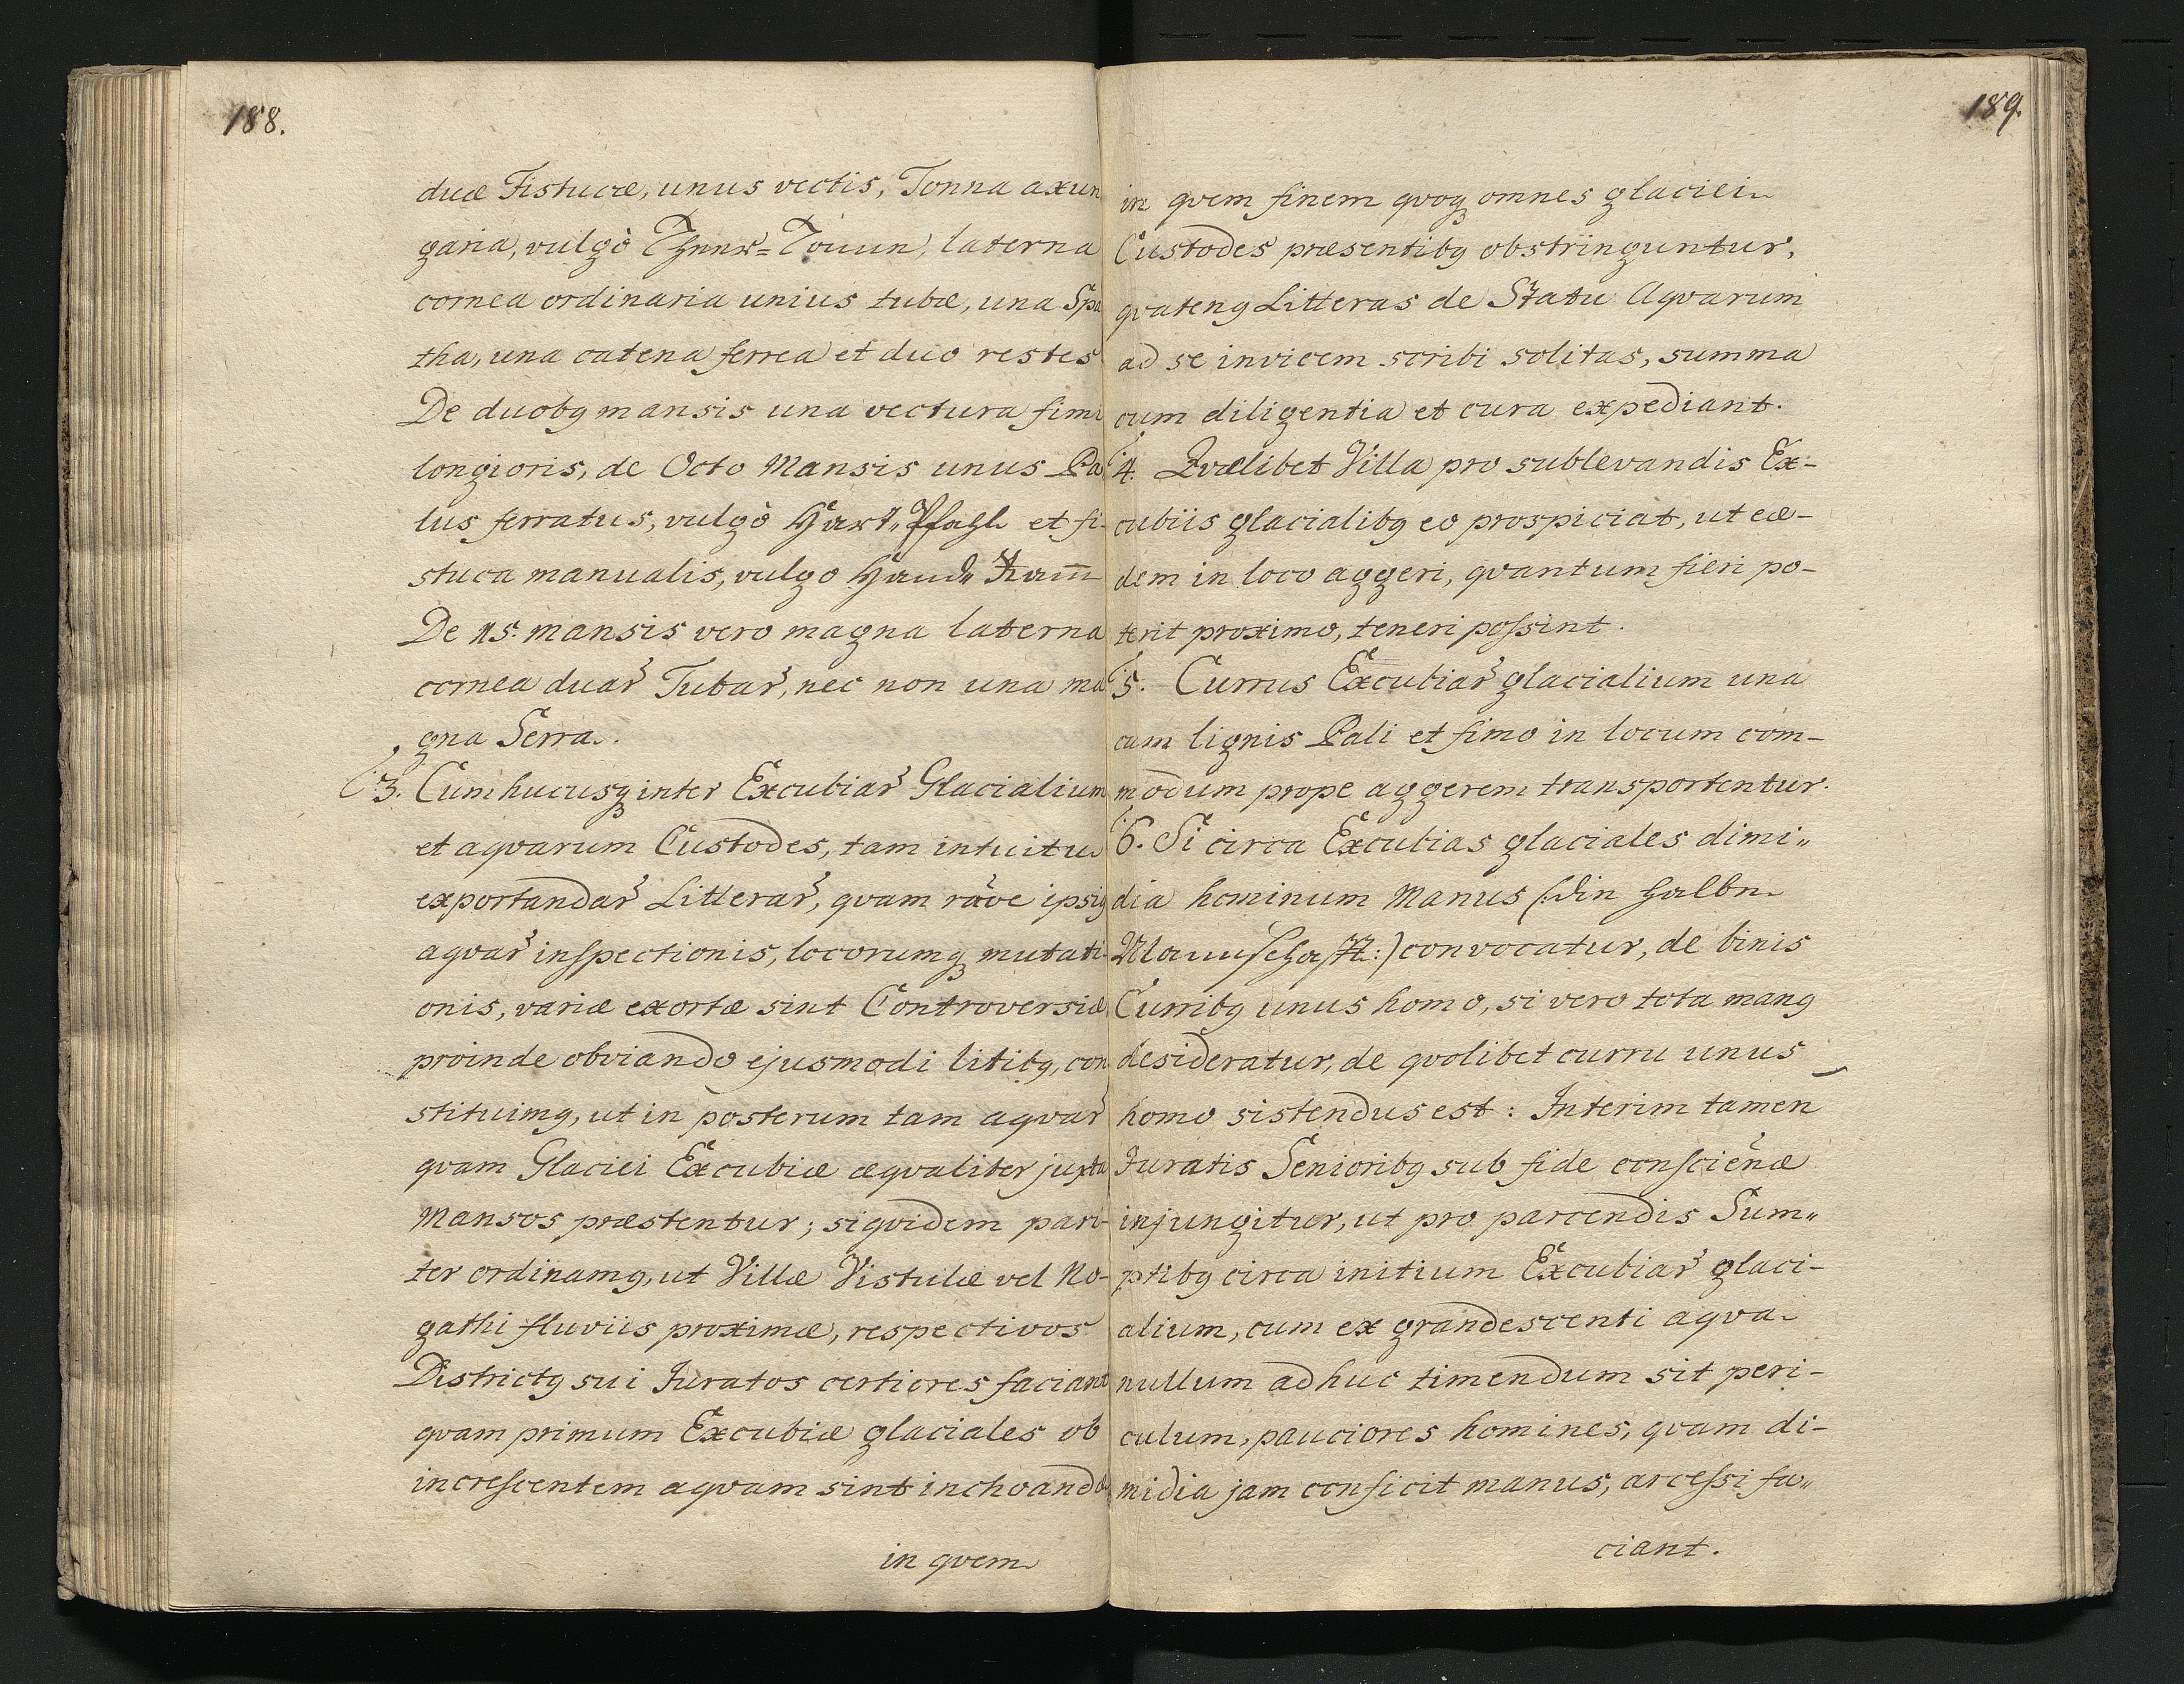 188.
duæ Fistucæ, unus vectis, Tonna axun
garia, vulgò Theer-Tonne, laterna
cornea ordinaria unius tubæ, una Spa
tha, una catena ferrea et duo restes
De duobꝯ mansis una vectura fimi
longioris, de Octo Mansis unus Pa
lus ferratus, vulgò Hart„Pfahl et fi-
stuca manualis, vulgo Hand„Ram̄
De 15. mansis vero magna laterna
cornea duar̃ Tubar̃, nec non una ma
gna Serra.
3. Cum hucusqꝫ inter Excubiar̃ Glacialium
et aqvarum Custodes, tam intuitu
exportandar̃ Litterar̃, qvam râõe ipsiꝯ
aqvar̃ inſpectionis, locorumqꝫ mutati-
onis, variæ exortæ sint Controversiæ
proinde obviando ejusmodi litibꝯ, con
stituimꝯ, ut in posterum tam aqvar̃
qvam Glaciei Excubiæ æqvaliter juxta
Mansos præstentur; siqvidem pari-
ter ordinamꝯ, ut Villæ Vistulæ vel No-
gathi fluviis proximæ, respectivos
Districtꝯ sui Juratos certiores faciant
qvam primum Excubiæ glaciales ob
increſcentem aqvam sint inchoandæ
in qvem
189.
in qvem finem qvoqꝫ omnes glaciei
Custodes præsentibꝯ obstringuntur,
qvatenꝯ Litteras de Statu Aqvarum
ad se invicem scribi solitas, summa
cum diligentia et cura expediant.
4. Qvælibet Villa pro sublevandis Ex-
cubiis glacialibꝯ eo prospiciat, ut eæ-
dem in loco aggeri, qvantum fieri po-
terit proximo, teneri poſsint.
5. Currus Excubiar̃ glacialium una
cum lignis Pali et fimo in locum com-
modum prope aggerem transportentur.
6. Si circa Excubias glaciales dimi„
dia hominum Manus (:die halbe
Mannschafft:) convocatur, de binis
Curribꝯ unus homo, si vero tota manꝯ
desideratur, de qvolibet curru unus
homo sistendus est: Interim tamen
Juratis Senioribꝯ sub fide conſciẽnæ
injungitur, ut pro parcendis Sum„
ptibꝯ circa initium Excubiar̃ glaci-
alium, cum ex grandescenti aqva
nullum adhuc timendum sit peri-
culum, pauciores homines, qvam di-
midia jam conficit manus, arceſsi fa„
ciant.